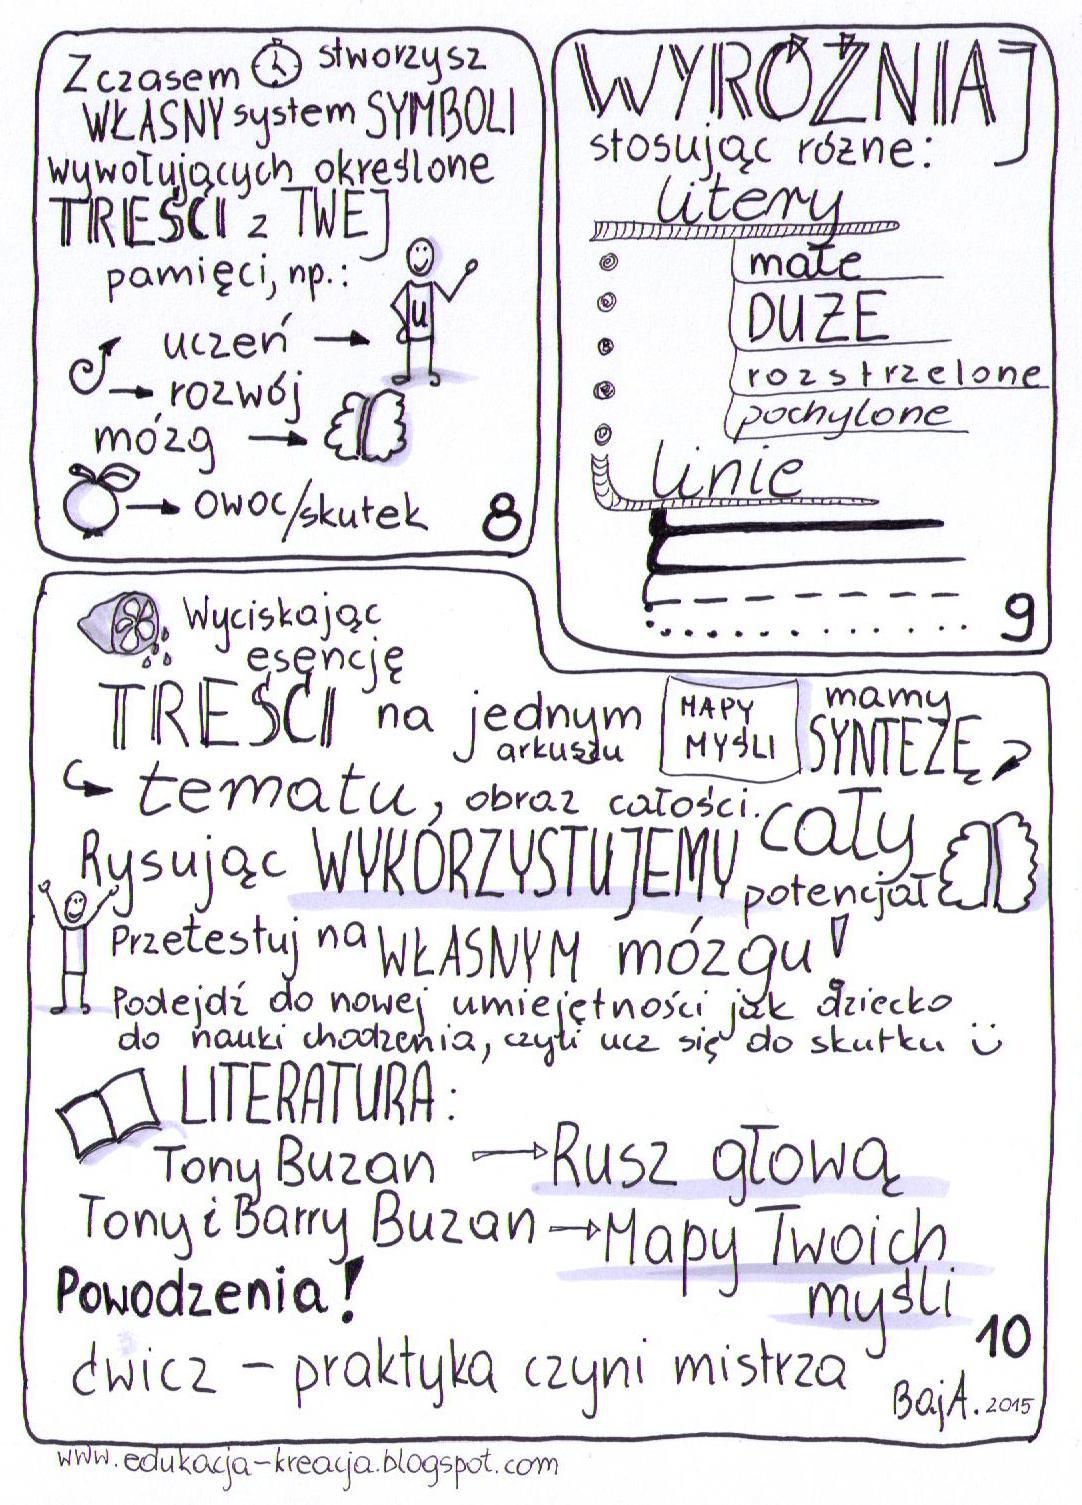 Z czasem stworzysz
WŁASNY system SYMBOLI
wywołujących określone
TREŚCI z TWEJ
pamięci, np.:
u
uczeń
rozwój
mózg
owoc/skutek
8
WYRÓŻNIAJ
stosując różne:
litery
małe
DUŻE
rozstrzelone
pochylone
linie
9
Wyciskając
esencję
TREŚCI na jednym
arkuszu
MAPY
MYŚLI
mamy
SYNTEZĘ
tematu, obraz całości.
Rysując WYKORZYSTUJEMY cały
potencjał
Przetestuj na WŁASNYM mózgu!
Podejdź do nowej umiejętności jak dziecko
do nauki chodzenia, czyli ucz się do skutku
LITERATURA:
Tony Buzan Rusz głową
Tony i Barry Buzan Mapy Twoich
myśli
Powodzenia!
10
ćwicz – praktyka czyni mistrza
BajA. 2015
www.edukacja-kreacja.blogspot.com